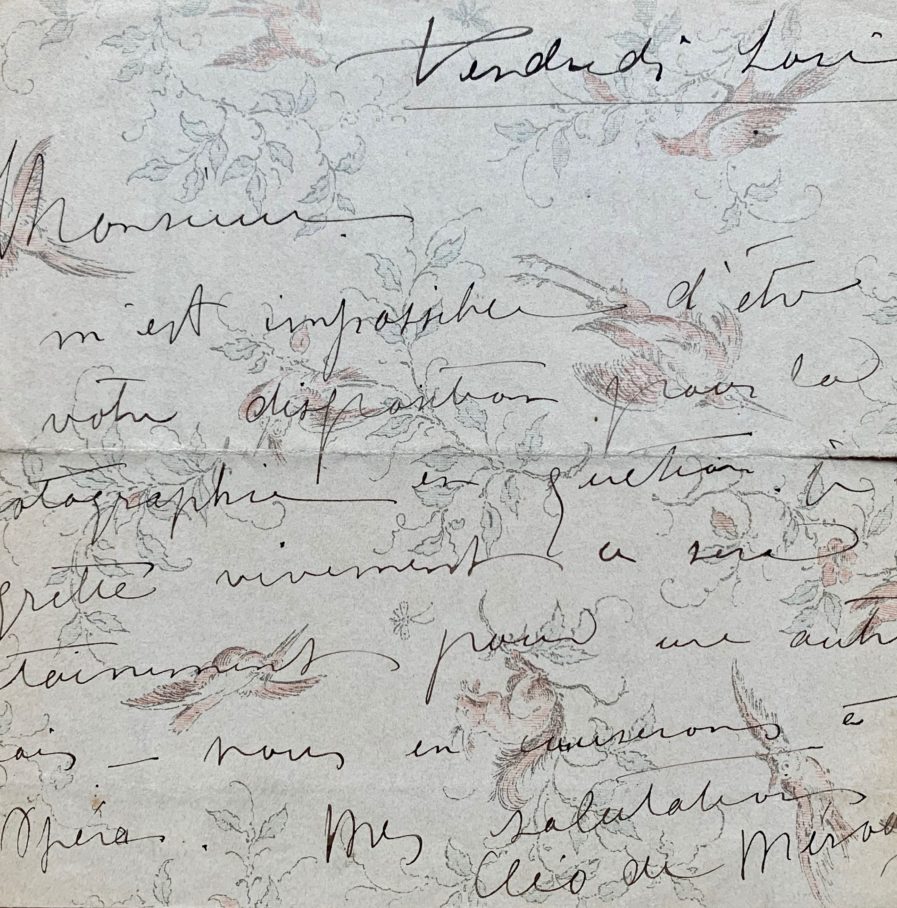 Vendredi soir
Monsieur
m'est impossible d'être
votre disposition pour la
otographie en question. Je
grette vivement ce sera
tainement pour une autr
ois – nous en causerons à
Opéra. Mes salutations
Cléo de Mérod